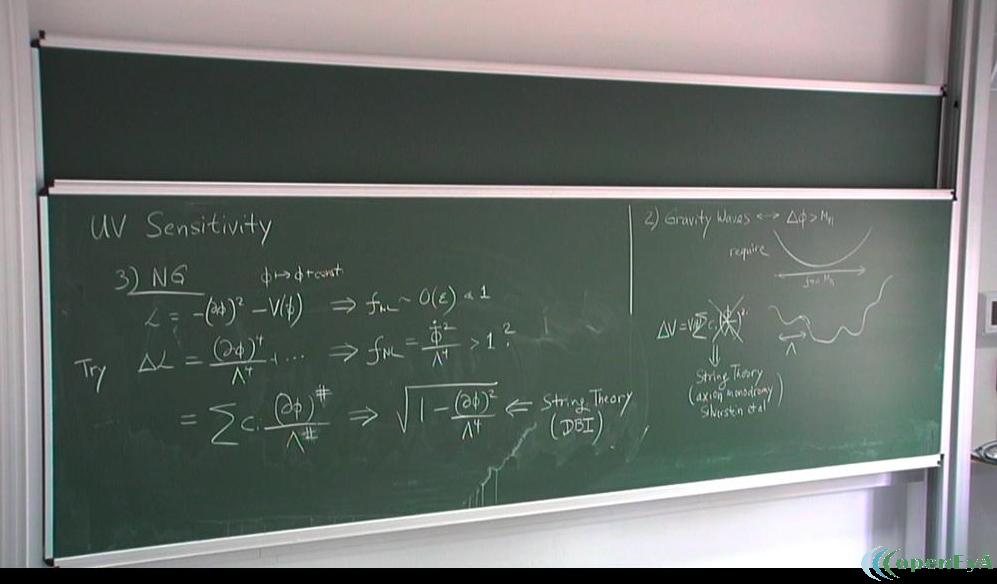 UV Sensitivity
3) NG ϕ ↦ ϕ + const
ℒ = -(∂ϕ)² - V(ϕ) ⇒ f_NL ~ O(ε) < 1
Try Δℒ = (∂ϕ)⁴/Λ⁴ + ... ⇒ f_NL = ϕ̇²/Λ⁴ > 1 ?
= Σ cᵢ (∂ϕ)^#/Λ^# ⇒ √(1 - (∂ϕ)²/Λ⁴) ⇐ String Theory
(DBI)
2) Gravity Waves ↔ Δϕ > M_pl
require
ΔV =
Λ
⇓
String Theory
(axion monodromy)
Silverstein et al
openEyA